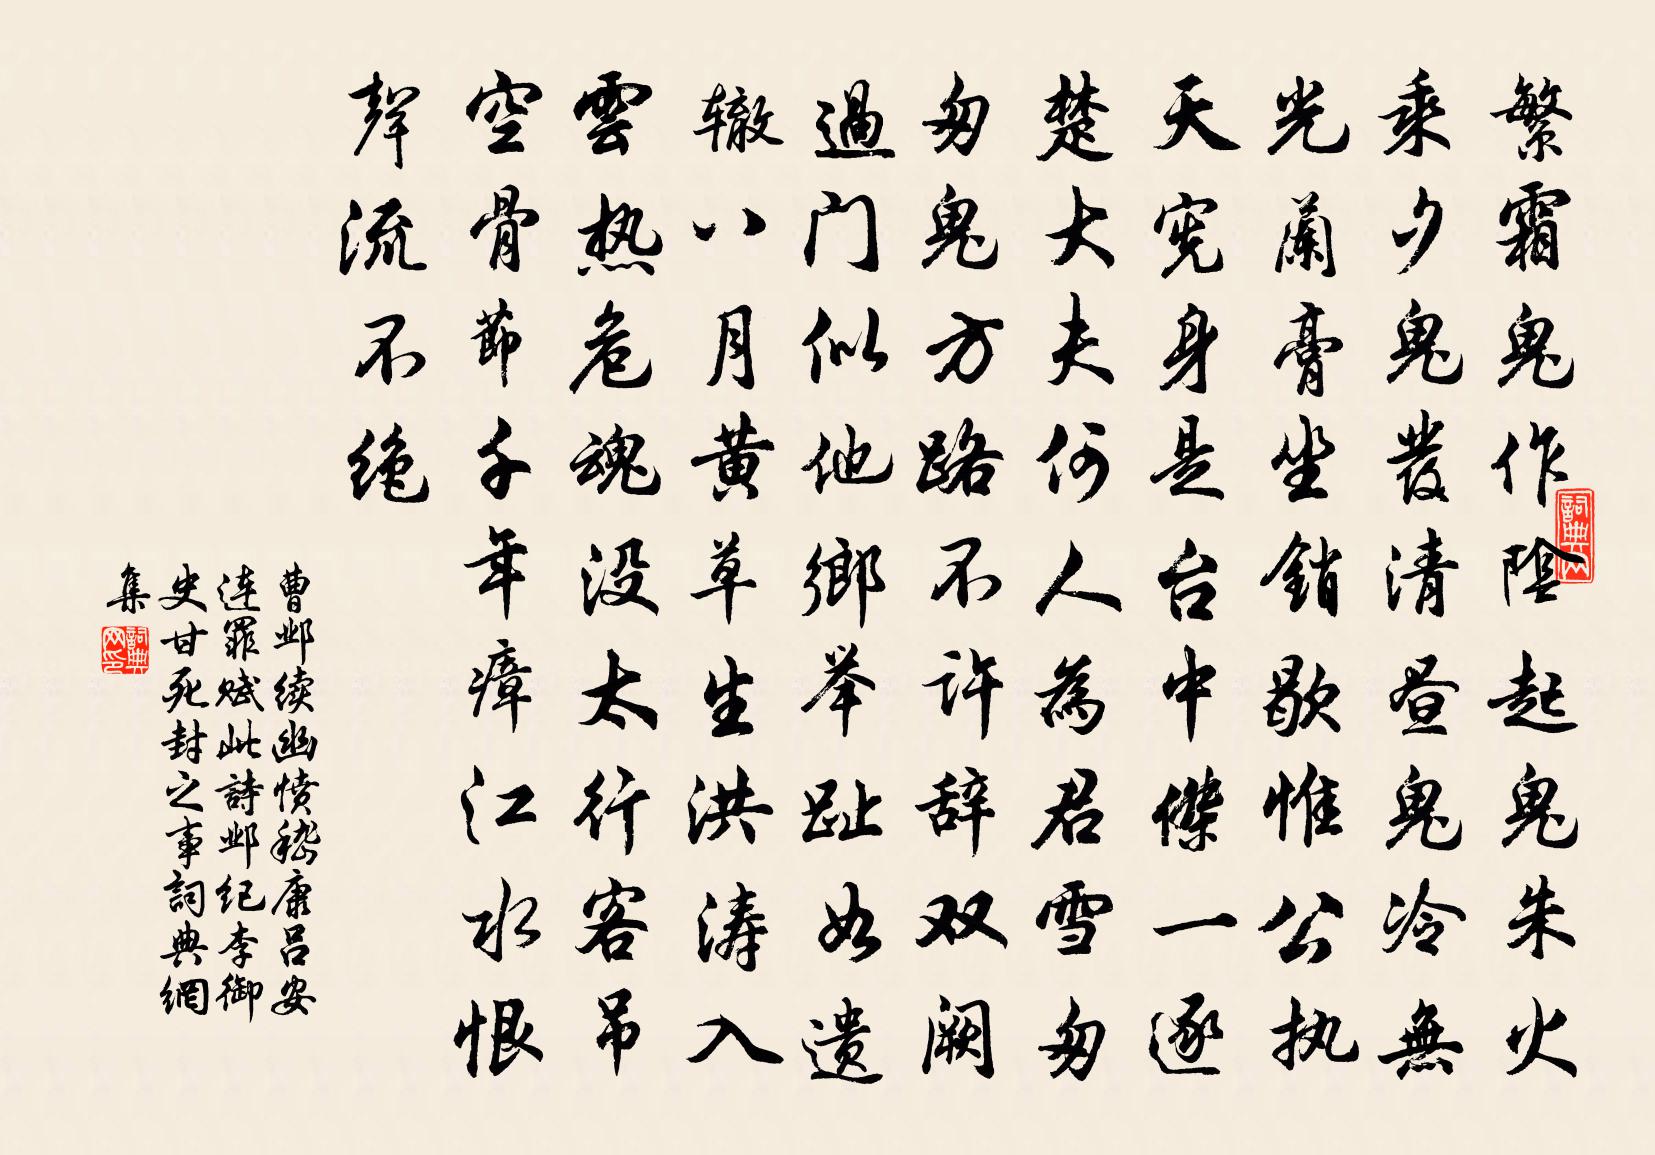 繁霜鬼作陰起鬼朱火
乘夕鬼發清昼鬼冷無
光蘭膏坐銷歇惟公执
天宪身是台中傑一逐
楚大夫何人為君雪匆
匆鬼方路不许辞双阙
過门似他鄉举趾如遗
辙八月黄草生洪涛入
雲热危魂没太行客吊
空骨節千年瘴江水恨
聲流不绝
曹邺续幽愤嵇康吕安
连罪赋此詩邺纪李御
史甘死封之事詞典網
集
詞典网
詞典网印